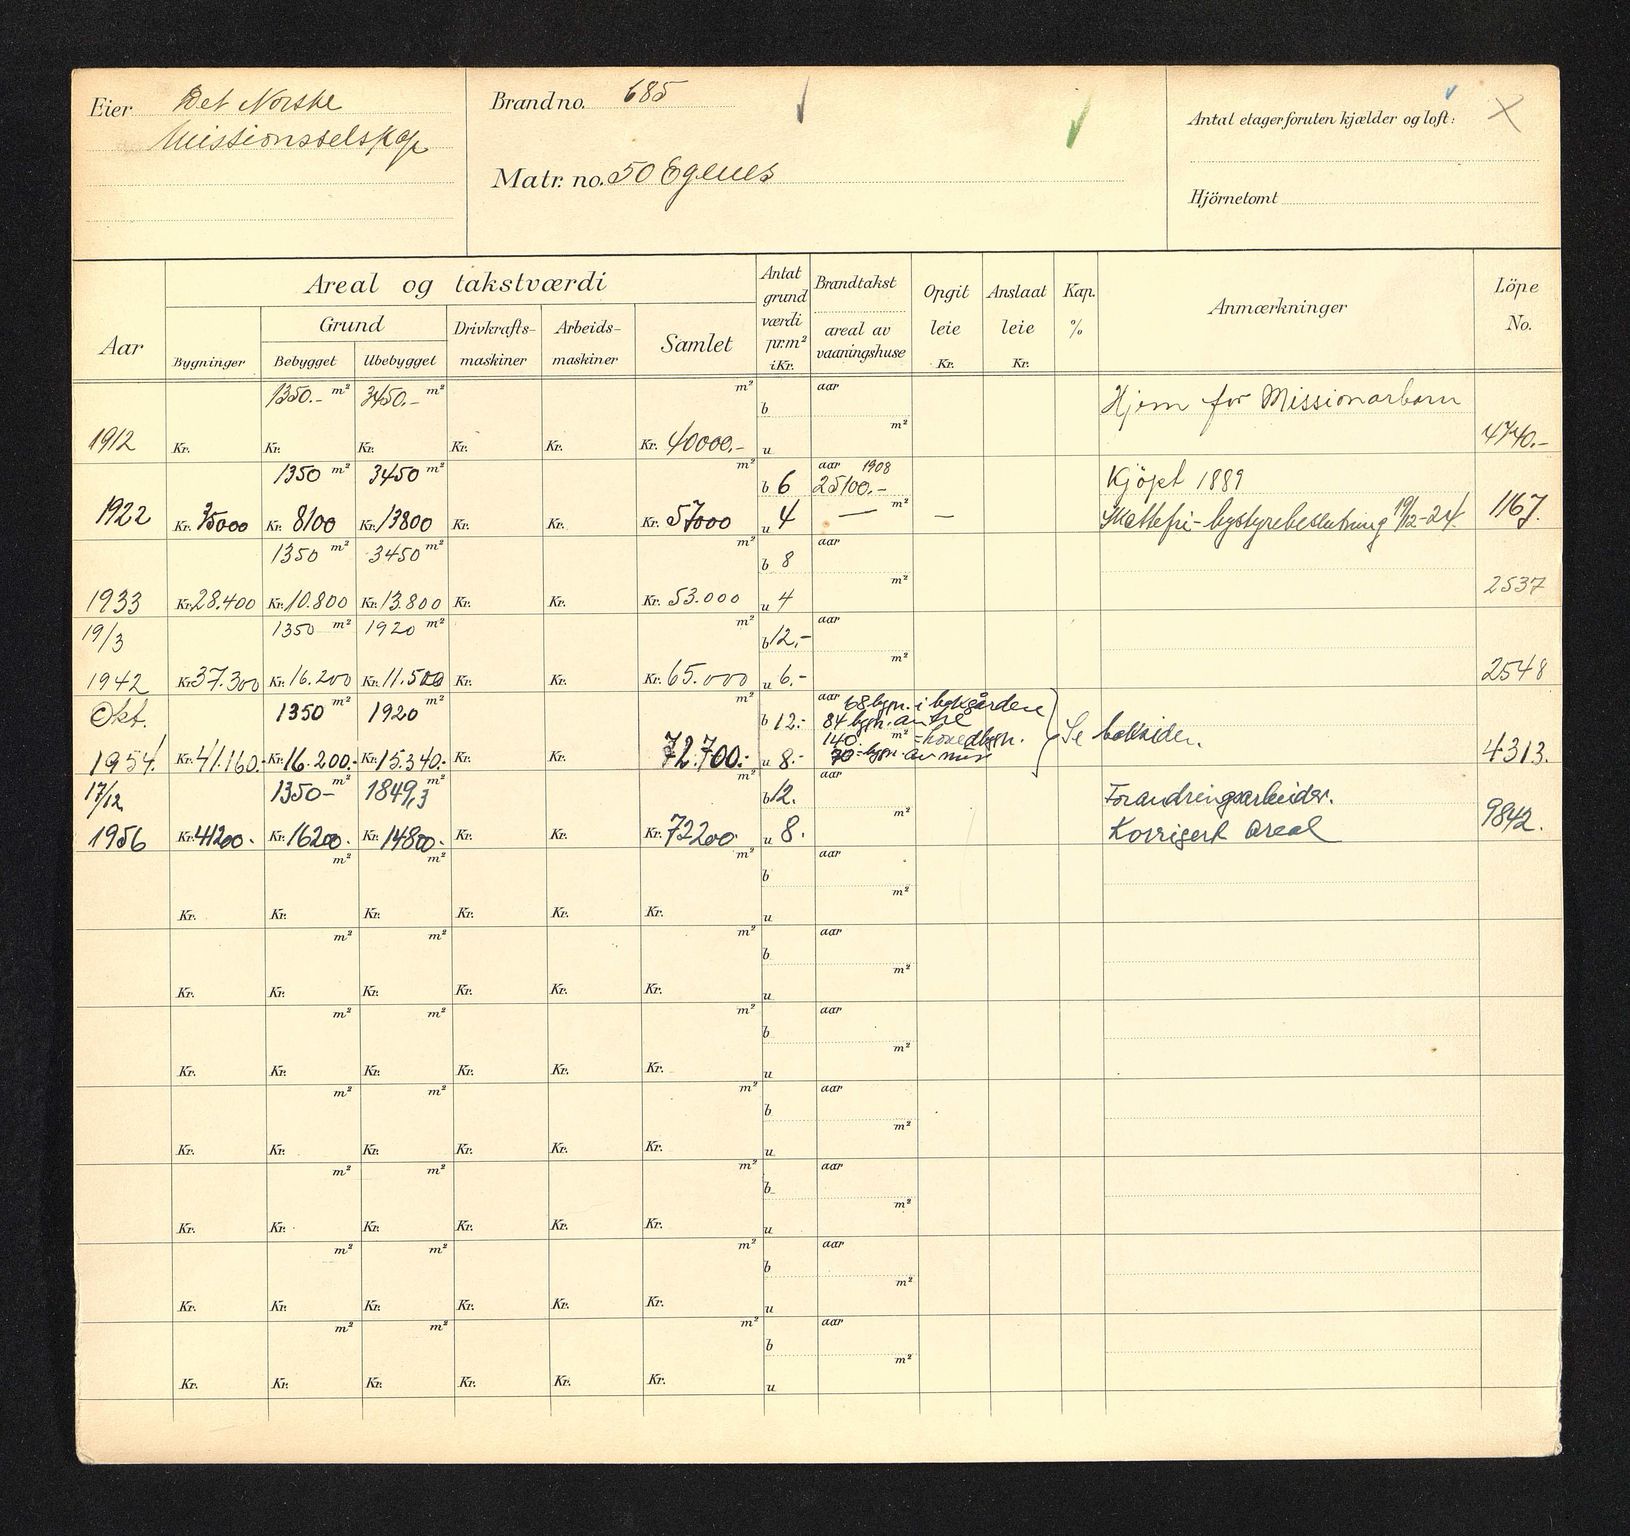 Eier Det Norske
Missionsselskap
Brand no. 685
Matr. no. 50 Egenes
Antal etager foruten kjælder og loft:
Hjörnetomt
Aar
Areal og takstværdi
Bygninger
Grund
Bebygget
Ubebygget
Drivkrafts-
maskiner
Arbeids-
maskiner
Samlet
Antat
grund
værdi
pr.m²
i Kr.
Brandtakst
areal av
vaaningshuse
Opgit
leie
Kr.
Anslaat
leie
Kr.
Kap.
%
Anmærkninger
Löpe
No.
1350.- m² 3450.- m² m² aar Hjem for Missionærbarn
b
m²
1912 Kr. Kr. Kr. Kr. Kr. Kr. 40000.- u 4740.-
1350 m² 3450 m² m² aar 1908 Kjöpt 1889
b 6 25100.-
m²
1922 Kr. 35000 Kr. 8100 Kr. 13800 Kr. Kr. Kr. 57000 u 4 — — Skattefri - bystyrebeslutning 19/12-24. 1167.
1350 m² 3450 m² m² aar
b 8
m²
1933 Kr. 28.400 Kr. 10.800 Kr. 13.800 Kr. Kr. Kr. 53.000 u 4 2537
19/3 1350 m² 1920 m² m² aar
b 12.-
m²
1942 Kr. 37.300 Kr. 16.200 Kr. 11.500 Kr. Kr. Kr. 65.000 u 6.- 2548
Okt. 1350 m² 1920 m² m² aar 68 bygn. i bakgården
b 12.- 84 bygn. andre
140 m² = hovedbygn. Se baksiden.
1954. Kr. 41.160.- Kr. 16.200.- Kr. 15.340.- Kr. Kr. 72.700.- u 8.- 70 - bygn. av mur 4313.
17/12 1350- m² 1849,3 m² m² aar Forandringsarbeider.
b 12.
m²
1956 Kr. 41200.- Kr. 16200.- Kr. 14800.- Kr. Kr. Kr. 72200.- u 8. Korrigert areal 9842.
m² m² m² aar
b
m²
Kr. Kr. Kr. Kr. Kr. Kr. u
m² m² m² aar
b
m²
Kr. Kr. Kr. Kr. Kr. Kr. u
m² m² m² aar
b
m²
Kr. Kr. Kr. Kr. Kr. Kr. u
m² m² m² aar
b
m²
Kr. Kr. Kr. Kr. Kr. Kr. u
m² m² m² aar
b
m²
Kr. Kr. Kr. Kr. Kr. Kr. u
m² m² m² aar
b
m²
Kr. Kr. Kr. Kr. Kr. Kr. u
m² m² m² aar
b
m²
Kr. Kr. Kr. Kr. Kr. Kr. u